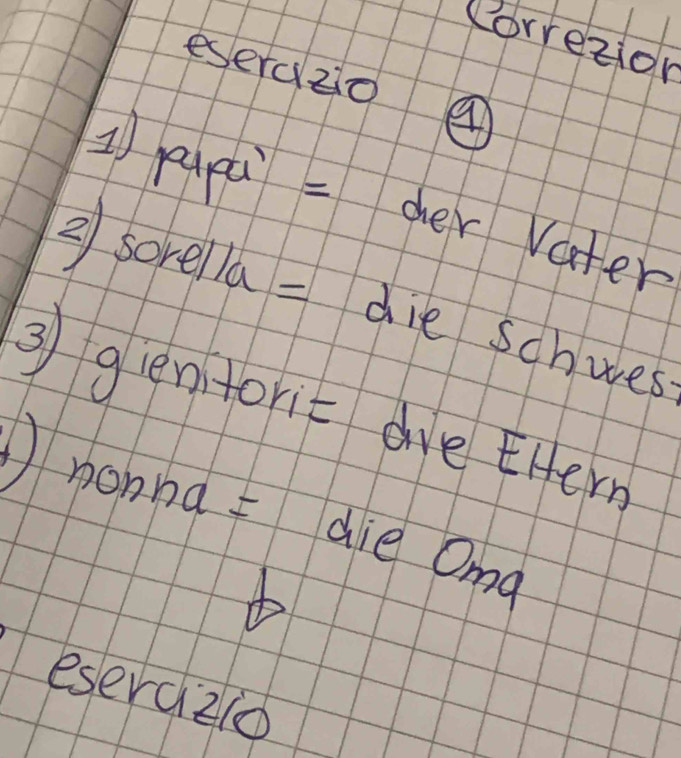 Correzion
esercizio 1
1) papà = der Vater
2) sorella = die schwest
3) gienitori = die Eltern
4) nonna = die Oma
esercizio